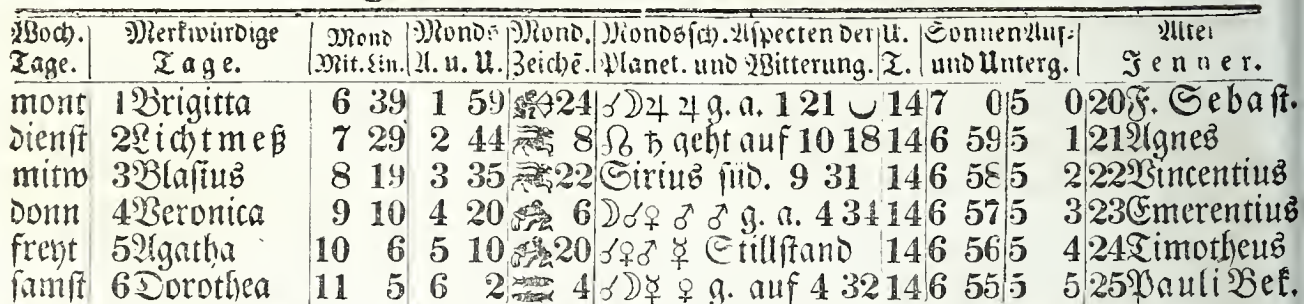 Woch. Merkwürdige Mond Monds Mond. Mondssch. Aspecten der U. Sonnen Auf- Alter
Tage. Tage. Mit. Lin. A. u. U. Zeichē. Planet. und Witterung. T. und Unterg. Jenner.
mont 1 Brigitta 6 39 1 59 24 ☌☽♃ ♃ g. a. 1 21 ◡ 14 7 0 5 0 20 F. Sebast.
dienst 2 Lichtmeß 7 29 2 44 8 ☊ ♄ geht auf 10 18 14 6 59 5 1 21 Agnes
mitw 3 Blasius 8 19 3 35 22 Sirius süd. 9 31 14 6 58 5 2 22 Vincentius
donn 4 Veronica 9 10 4 20 6 ☽☌♀ ♂ ♂ g. a. 4 34 14 6 57 5 3 23 Emerentius
freyt 5 Agatha 10 6 5 10 20 ☌♀♂ ☿ Stillstand 14 6 56 5 4 24 Timotheus
samst 6 Dorothea 11 5 6 2 4 ☌☽☿ ♀ g. auf 4 32 14 6 55 5 5 25 Pauli Bek.